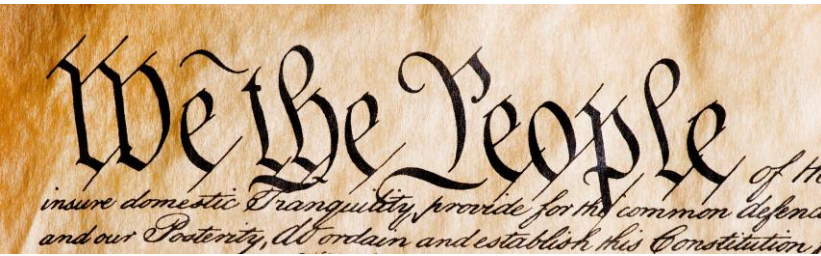 We the People of th
insure domestic Tranquility, provide for the common defenc
and our Posterity, do ordain and establish this Constitution